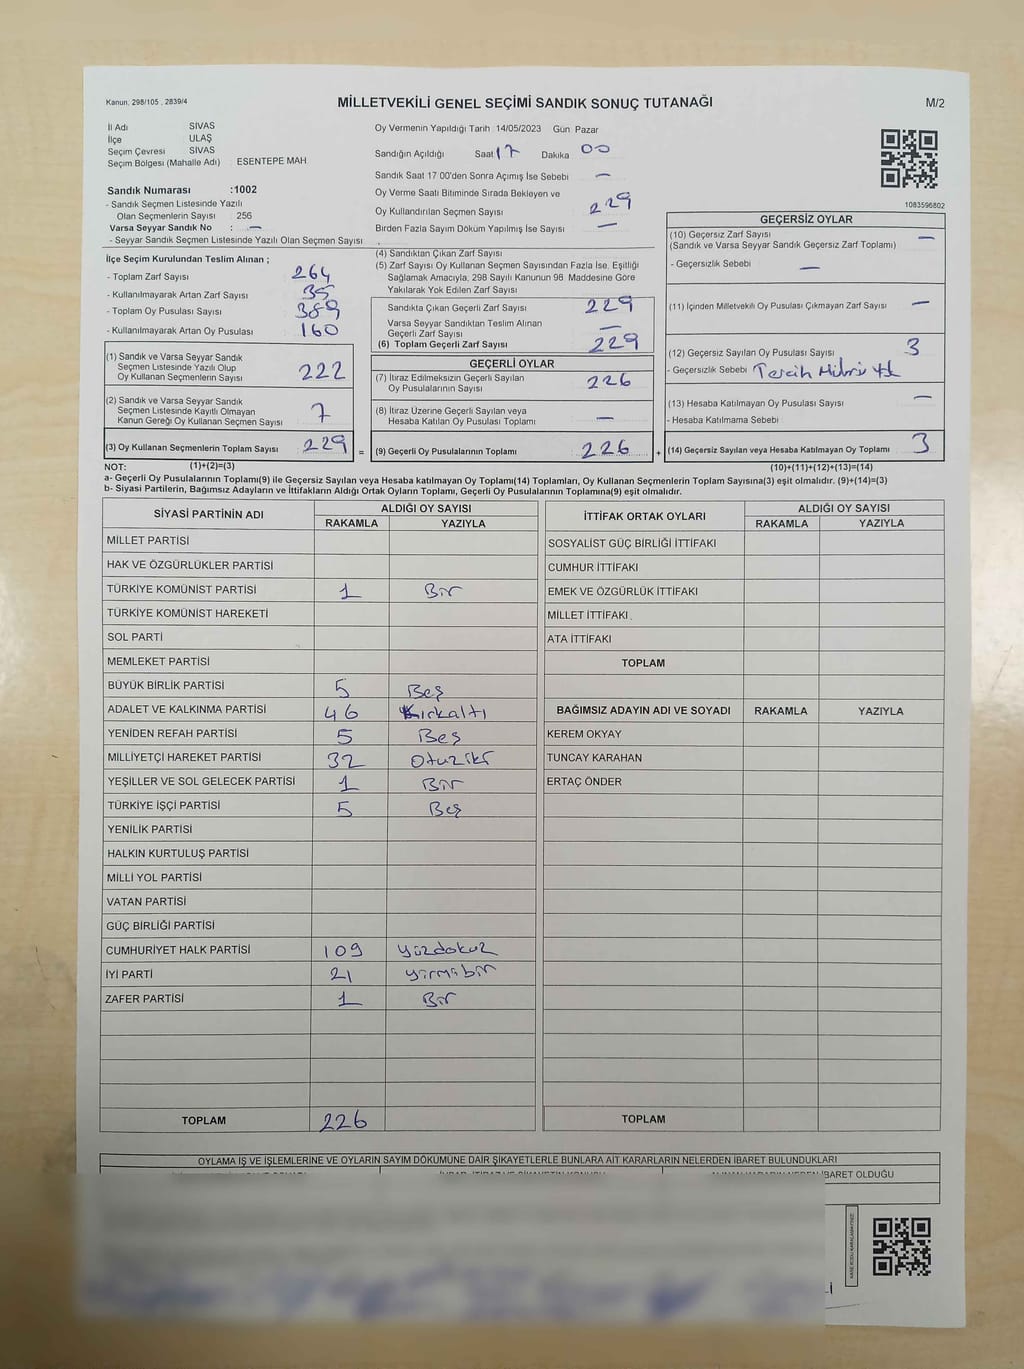 Kanun, 298/105 , 2839/4
MİLLETVEKİLİ GENEL SEÇİMİ SANDIK SONUÇ TUTANAĞI
M/2
İl Adı SİVAS
İlçe ULAŞ
Seçim Çevresi SİVAS
Seçim Bölgesi (Mahalle Adı) : ESENTEPE MAH
Sandık Numarası :1002
- Sandık Seçmen Listesinde Yazılı
Olan Seçmenlerin Sayısı : 256
Varsa Seyyar Sandık No : —
- Seyyar Sandık Seçmen Listesinde Yazılı Olan Seçmen Sayısı
Oy Vermenin Yapıldığı Tarih 14/05/2023 Gün Pazar
Sandığın Açıldığı Saat 17 Dakika 00
Sandık Saat 17 00'den Sonra Açımış İse Sebebi —
Oy Verme Saati Bitiminde Sırada Bekleyen ve
Oy Kullandırılan Seçmen Sayısı 229
Birden Fazla Sayım Döküm Yapılmış İse Sayısı —
1083596802
İlçe Seçim Kurulundan Teslim Alınan ;
- Toplam Zarf Sayısı 264
- Kullanılmayarak Artan Zarf Sayısı 35
- Toplam Oy Pusulası Sayısı 389
- Kullanılmayarak Artan Oy Pusulası 160
(1) Sandık ve Varsa Seyyar Sandık
Seçmen Listesinde Yazılı Olup
Oy Kullanan Seçmenlerin Sayısı 222
(2) Sandık ve Varsa Seyyar Sandık
Seçmen Listesinde Kayıtlı Olmayan
Kanun Gereği Oy Kullanan Seçmen Sayısı 7
(3) Oy Kullanan Seçmenlerin Toplam Sayısı 229 =
(4) Sandıktan Çıkan Zarf Sayısı
(5) Zarf Sayısı Oy Kullanan Seçmen Sayısından Fazla İse, Eşitliği
Sağlamak Amacıyla, 298 Sayılı Kanunun 98 Maddesine Göre
Yakılarak Yok Edilen Zarf Sayısı
Sandıkta Çıkan Geçerli Zarf Sayısı 229
Varsa Seyyar Sandıktan Teslim Alınan
Geçerli Zarf Sayısı —
(6) Toplam Geçerli Zarf Sayısı 229
GEÇERLİ OYLAR
(7) İtiraz Edilmeksizin Geçerli Sayılan
Oy Pusulalarının Sayısı 226
(8) İtiraz Üzerine Geçerli Sayılan veya
Hesaba Katılan Oy Pusulası Toplamı —
(9) Geçerli Oy Pusulalarının Toplamı 226 +
GEÇERSİZ OYLAR
(10) Geçersiz Zarf Sayısı —
(Sandık ve Varsa Seyyar Sandık Geçersiz Zarf Toplamı)
- Geçersizlik Sebebi —
(11) İçinden Milletvekili Oy Pusulası Çıkmayan Zarf Sayısı —
(12) Geçersiz Sayılan Oy Pusulası Sayısı 3
- Geçersizlik Sebebi Tercih Mührü
(13) Hesaba Katılmayan Oy Pusulası Sayısı —
- Hesaba Katılmama Sebebi
(14) Geçersiz Sayılan veya Hesaba Katılmayan Oy Toplamı 3
NOT: (1)+(2)=(3) (10)+(11)+(12)+(13)=(14)
a- Geçerli Oy Pusulalarının Toplamı(9) ile Geçersiz Sayılan veya Hesaba katılmayan Oy Toplamı(14) Toplamları, Oy Kullanan Seçmenlerin Toplam Sayısına(3) eşit olmalıdır. (9)+(14)=(3)
b- Siyasi Partilerin, Bağımsız Adayların ve İttifakların Aldığı Ortak Oyların Toplamı, Geçerli Oy Pusulalarının Toplamına(9) eşit olmalıdır.
SİYASİ PARTİNİN ADI ALDIĞI OY SAYISI
RAKAMLA YAZIYLA
MİLLET PARTİSİ
HAK VE ÖZGÜRLÜKLER PARTİSİ
TÜRKİYE KOMÜNİST PARTİSİ 1 Bir
TÜRKİYE KOMÜNİST HAREKETİ
SOL PARTİ
MEMLEKET PARTİSİ
BÜYÜK BİRLİK PARTİSİ 5 Beş
ADALET VE KALKINMA PARTİSİ 46 Kırkaltı
YENİDEN REFAH PARTİSİ 5 Beş
MİLLİYETÇİ HAREKET PARTİSİ 32 Otuziki
YEŞİLLER VE SOL GELECEK PARTİSİ 1 Bir
TÜRKİYE İŞÇİ PARTİSİ 5 Beş
YENİLİK PARTİSİ
HALKIN KURTULUŞ PARTİSİ
MİLLİ YOL PARTİSİ
VATAN PARTİSİ
GÜÇ BİRLİĞİ PARTİSİ
CUMHURİYET HALK PARTİSİ 109 yüzdokuz
İYİ PARTİ 21 yirmibir
ZAFER PARTİSİ 1 Bir
TOPLAM 226
İTTİFAK ORTAK OYLARI ALDIĞI OY SAYISI
RAKAMLA YAZIYLA
SOSYALİST GÜÇ BİRLİĞİ İTTİFAKI
CUMHUR İTTİFAKI
EMEK VE ÖZGÜRLÜK İTTİFAKI
MİLLET İTTİFAKI
ATA İTTİFAKI
TOPLAM
BAĞIMSIZ ADAYIN ADI VE SOYADI RAKAMLA YAZIYLA
KEREM OKYAY
TUNCAY KARAHAN
ERTAÇ ÖNDER
TOPLAM
OYLAMA İŞ VE İŞLEMLERİNE VE OYLARIN SAYIM DÖKÜMÜNE DAİR ŞİKAYETLERLE BUNLARA AİT KARARLARIN NELERDEN İBARET BULUNDUKLARI
İBARET OLDUĞU